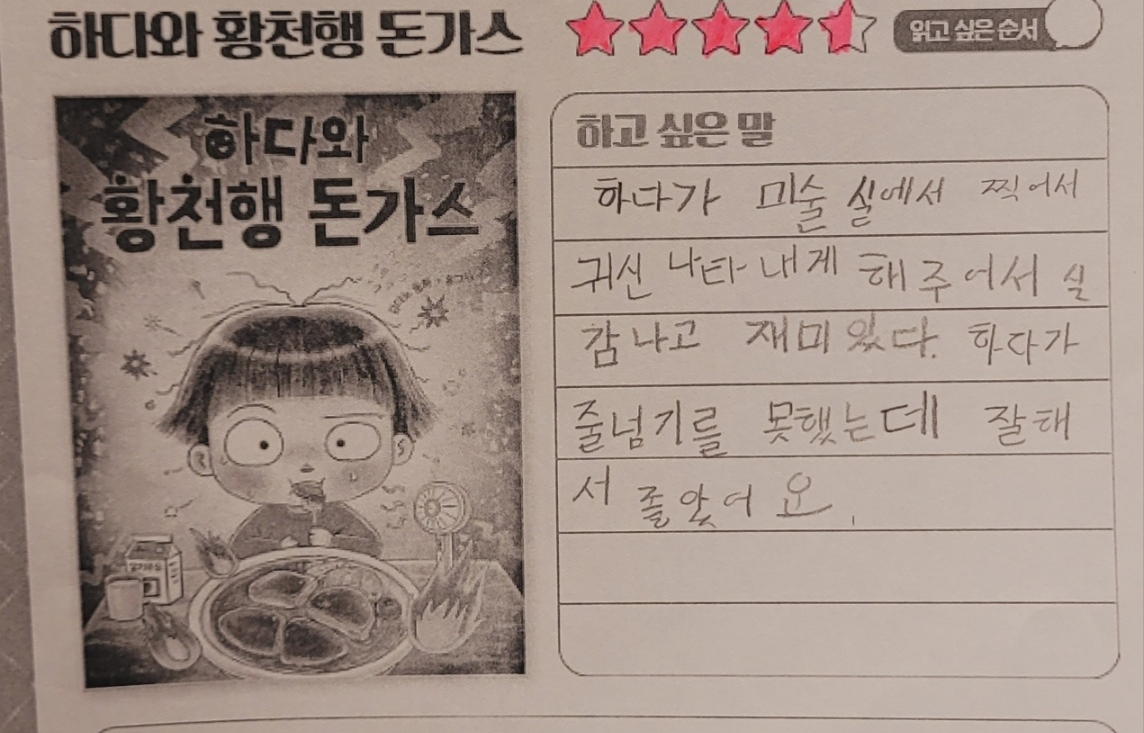 하다와 황천행 돈가스
읽고 싶은 순서
하다와
황천행 돈가스
하고 싶은 말
하다가 미술 실에서 찍어서
귀신 나타내게 해주어서 실
감나고 재미있다. 하다가
줄넘기를 못했는데 잘해
서 졸았어요.